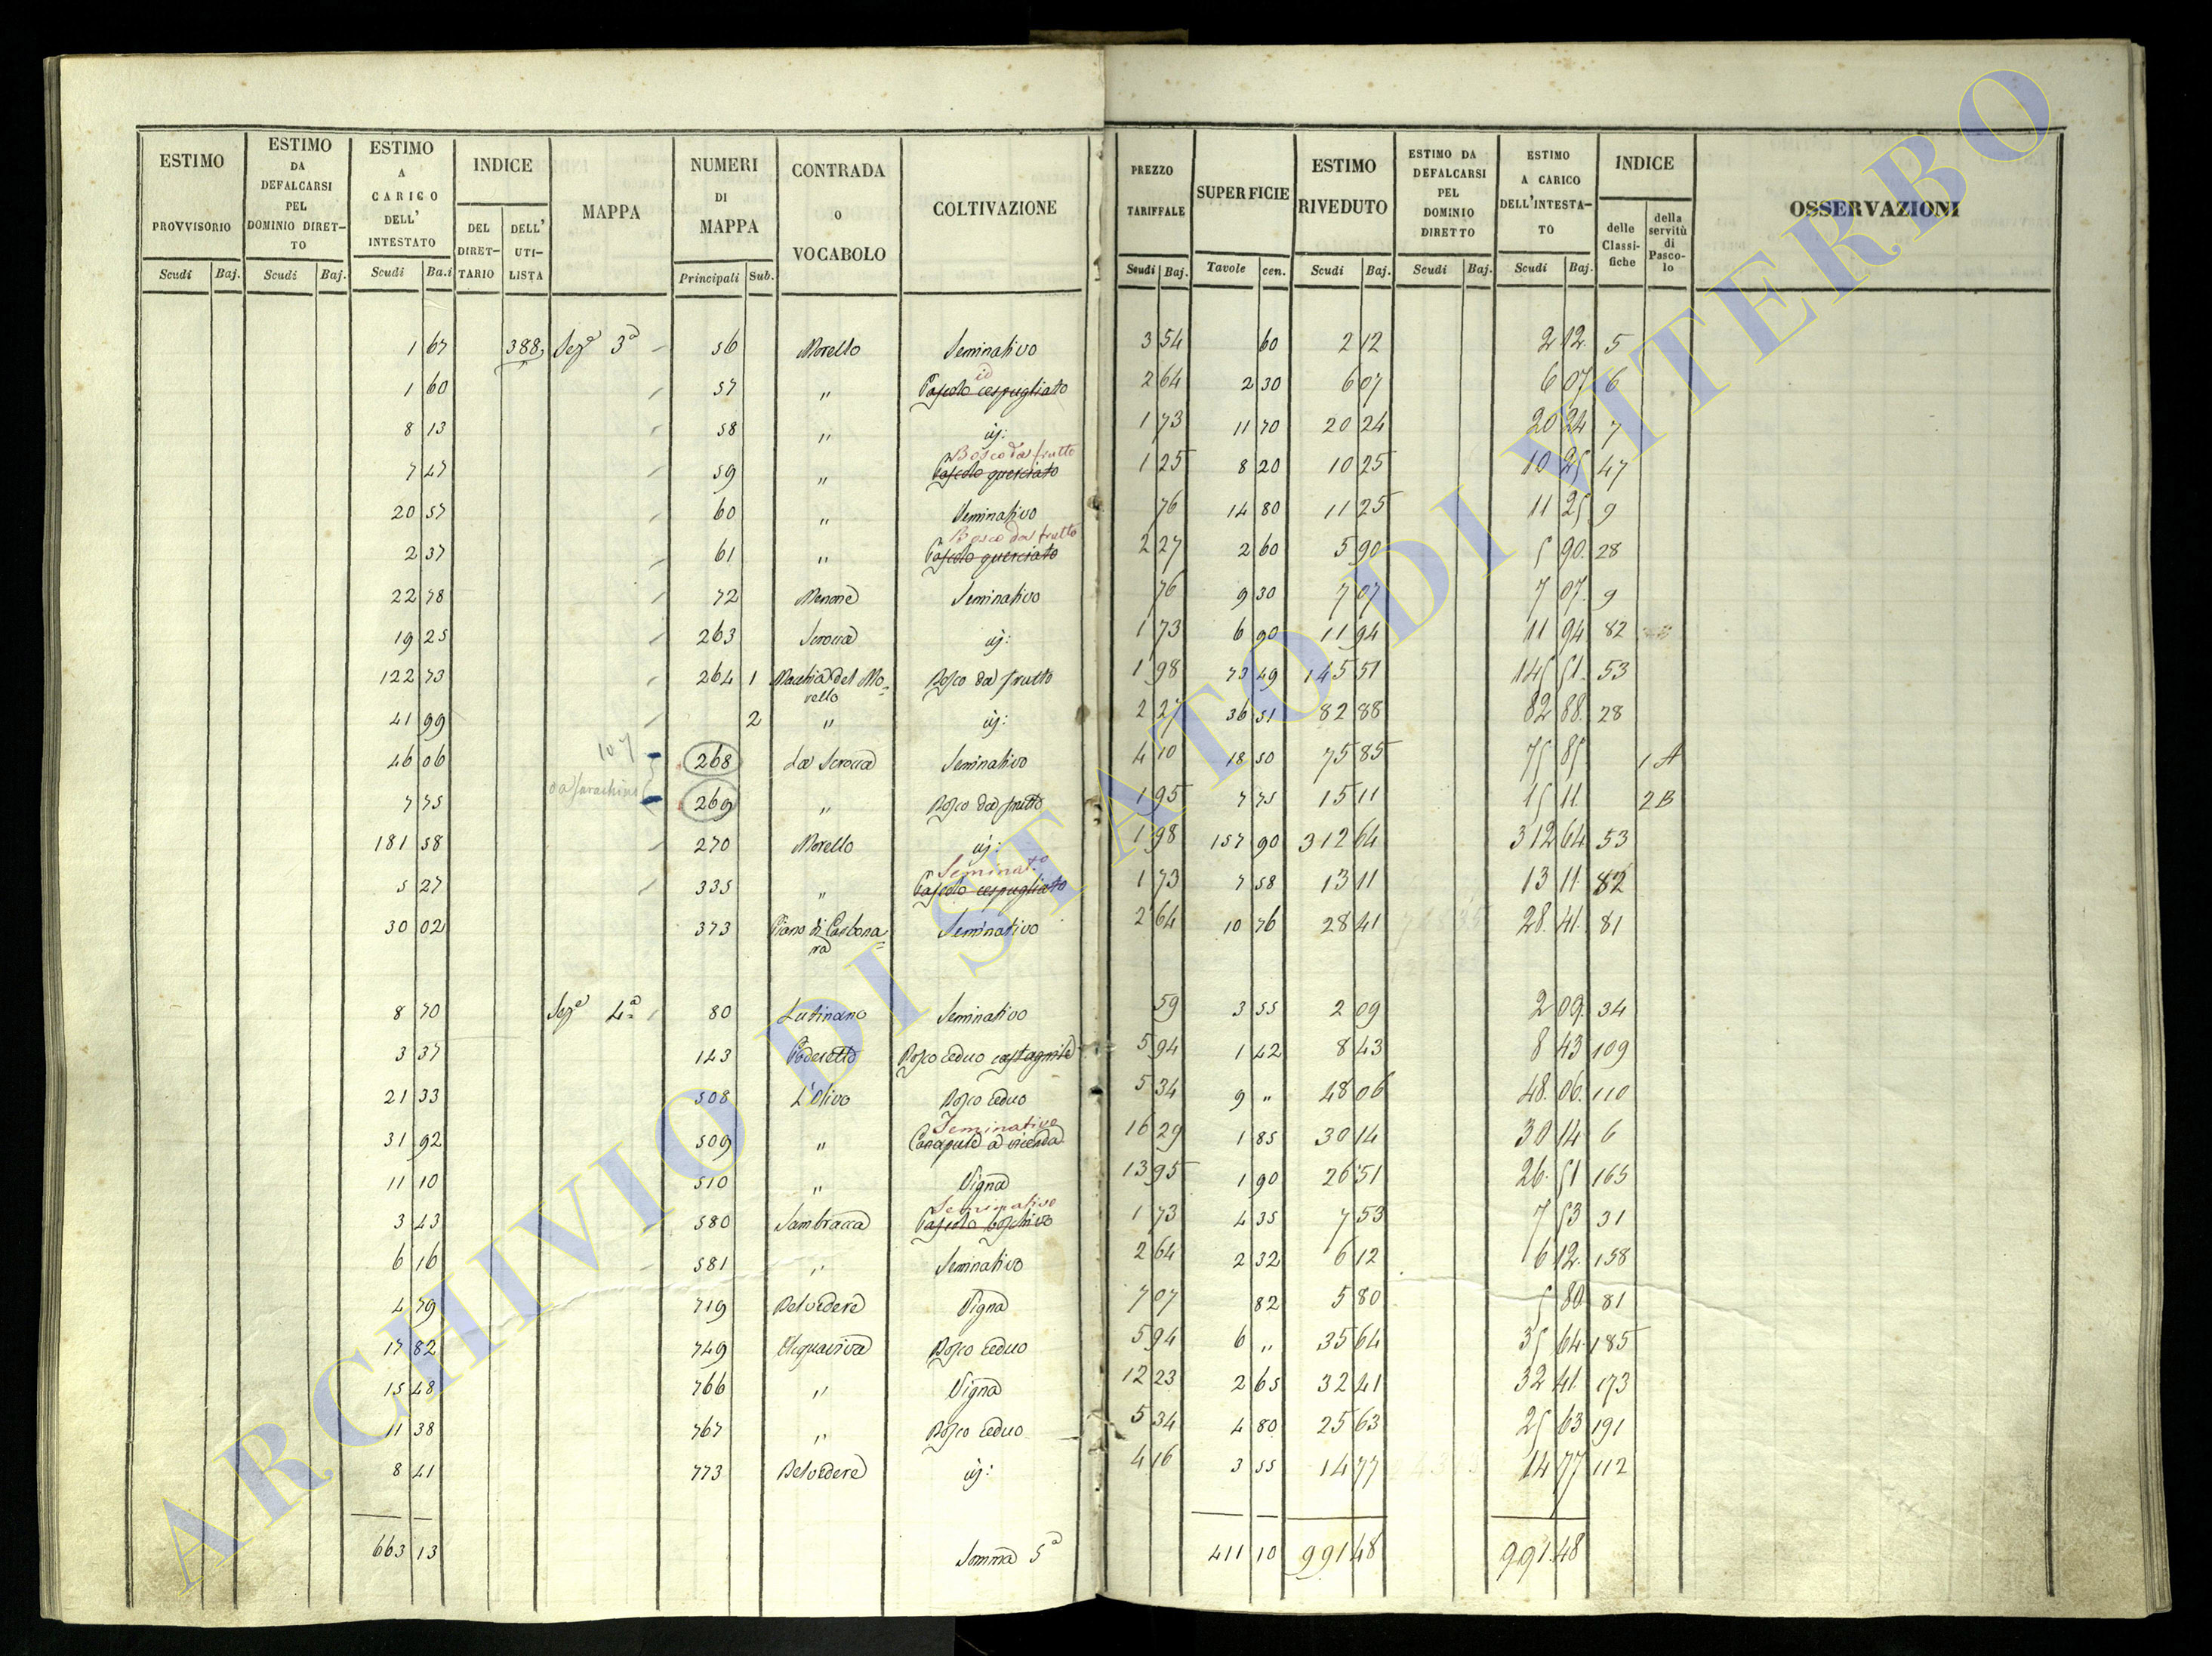 ESTIMO PROVVISORIO | ESTIMO DA DEFALCARSI PEL DOMINIO DIRETTO | ESTIMO A CARIGO DELL' INTESTATO | INDICE | MAPPA | NUMERI DI MAPPA | CONTRADA O VOCABOLO | COLTIVAZIONE | PREZZO TARIFFALE | SUPERFICIE | ESTIMO RIVEDUTO | ESTIMO DA DEFALCARSI PEL DOMINIO DIRETTO | ESTIMO A CARICO DELL'INTESTATO | INDICE | OSSERVAZIONI
DEL DIRETTARIO | DELL' UTILISTA | delle Classifiche | della servitù di Pascolo
Scudi | Baj. | Scudi | Baj. | Scudi | Ba.i | Principali | Sub. | Scudi | Baj. | Tavole | cen. | Scudi | Baj. | Scudi | Baj. | Scudi | Baj.
1 67 | 388 | Sez.e 3a | 56 | Morello | Seminativo | 3 54 | 60 | 2 12 | 2 12 | 5
1 60 | 57 | " | Pascolo cespugliato id | 2 64 | 2 30 | 6 07 | 6 07 | 6
8 13 | 58 | " | id: | 1 73 | 11 70 | 20 24 | 20 24 | 7
7 47 | 59 | " | Pascolo querciato Bosco da frutto | 1 25 | 8 20 | 10 25 | 10 25 | 47
20 57 | 60 | " | Seminativo | 76 | 14 80 | 11 25 | 11 25 | 9
2 37 | 61 | " | Pascolo querciato Bosco da frutto | 2 27 | 2 60 | 5 90 | 5 90 | 28
22 78 | 72 | Menone | Seminativo | 76 | 9 30 | 7 07 | 7 07 | 9
19 25 | 263 | Scrocca | id: | 1 73 | 6 90 | 11 94 | 11 94 | 82
122 73 | 264 | 1 | Macchia del Morello | Bosco da frutto | 1 98 | 73 49 | 145 51 | 145 51 | 53
41 99 | 2 | " | id: | 2 27 | 36 51 | 82 88 | 82 88 | 28
46 06 | 107 | 268 | La Scrocca | Seminativo | 4 10 | 18 50 | 75 85 | 75 85 | 1 A
7 75 | 269 | " | Bosco da frutto | 1 95 | 7 75 | 15 11 | 15 11 | 2 B
181 58 | 270 | Morello | id: | 1 98 | 157 90 | 312 64 | 312 64 | 53
5 27 | 335 | " | Pascolo cespugliato Seminato | 1 73 | 7 58 | 13 11 | 13 11 | 82
30 02 | 373 | Piano di Carbonara | Seminativo | 2 64 | 10 76 | 28 41 | 28 41 | 81
8 70 | Sez.e 4a | 80 | Lutinano | Seminativo | 59 | 3 55 | 2 09 | 2 09 | 34
3 37 | 143 | Poderetto | Bosco ceduo castagnile | 5 94 | 1 42 | 8 43 | 8 43 | 109
21 33 | 508 | L'Olivo | Bosco ceduo | 5 34 | 9 " | 48 06 | 48 06 | 110
31 92 | 509 | " | Canapule a vicenda Seminativo | 16 29 | 1 85 | 30 14 | 30 14 | 6
11 10 | 510 | " | Vigna | 13 95 | 1 90 | 26 51 | 26 51 | 165
3 43 | 580 | Sambracca | Pascolo boschivo Seminativo | 1 73 | 4 35 | 7 53 | 7 53 | 31
6 16 | 581 | " | Seminativo | 2 64 | 2 32 | 6 12 | 6 12 | 158
4 79 | 719 | Belvedere | Vigna | 7 07 | 82 | 5 80 | 5 80 | 81
17 82 | 749 | Acquaviva | Bosco ceduo | 5 94 | 6 " | 35 64 | 35 64 | 185
15 48 | 766 | " | Vigna | 12 23 | 2 65 | 32 41 | 32 41 | 173
11 38 | 767 | " | Bosco ceduo | 5 34 | 4 80 | 25 63 | 25 63 | 191
8 41 | 773 | Belvedere | id: | 4 16 | 3 55 | 14 77 | 14 77 | 112
663 13 | Somma 5a | 411 10 | 991 48 | 991 48
ARCHIVIO DI STATO DI VITERBO